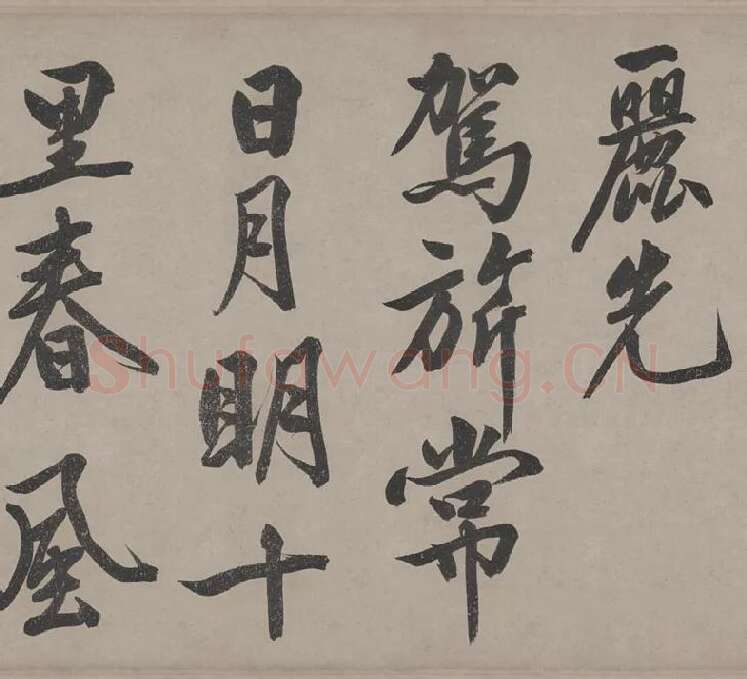 麗先
駕旂常
日月明十
里春風
Shufawang.CN